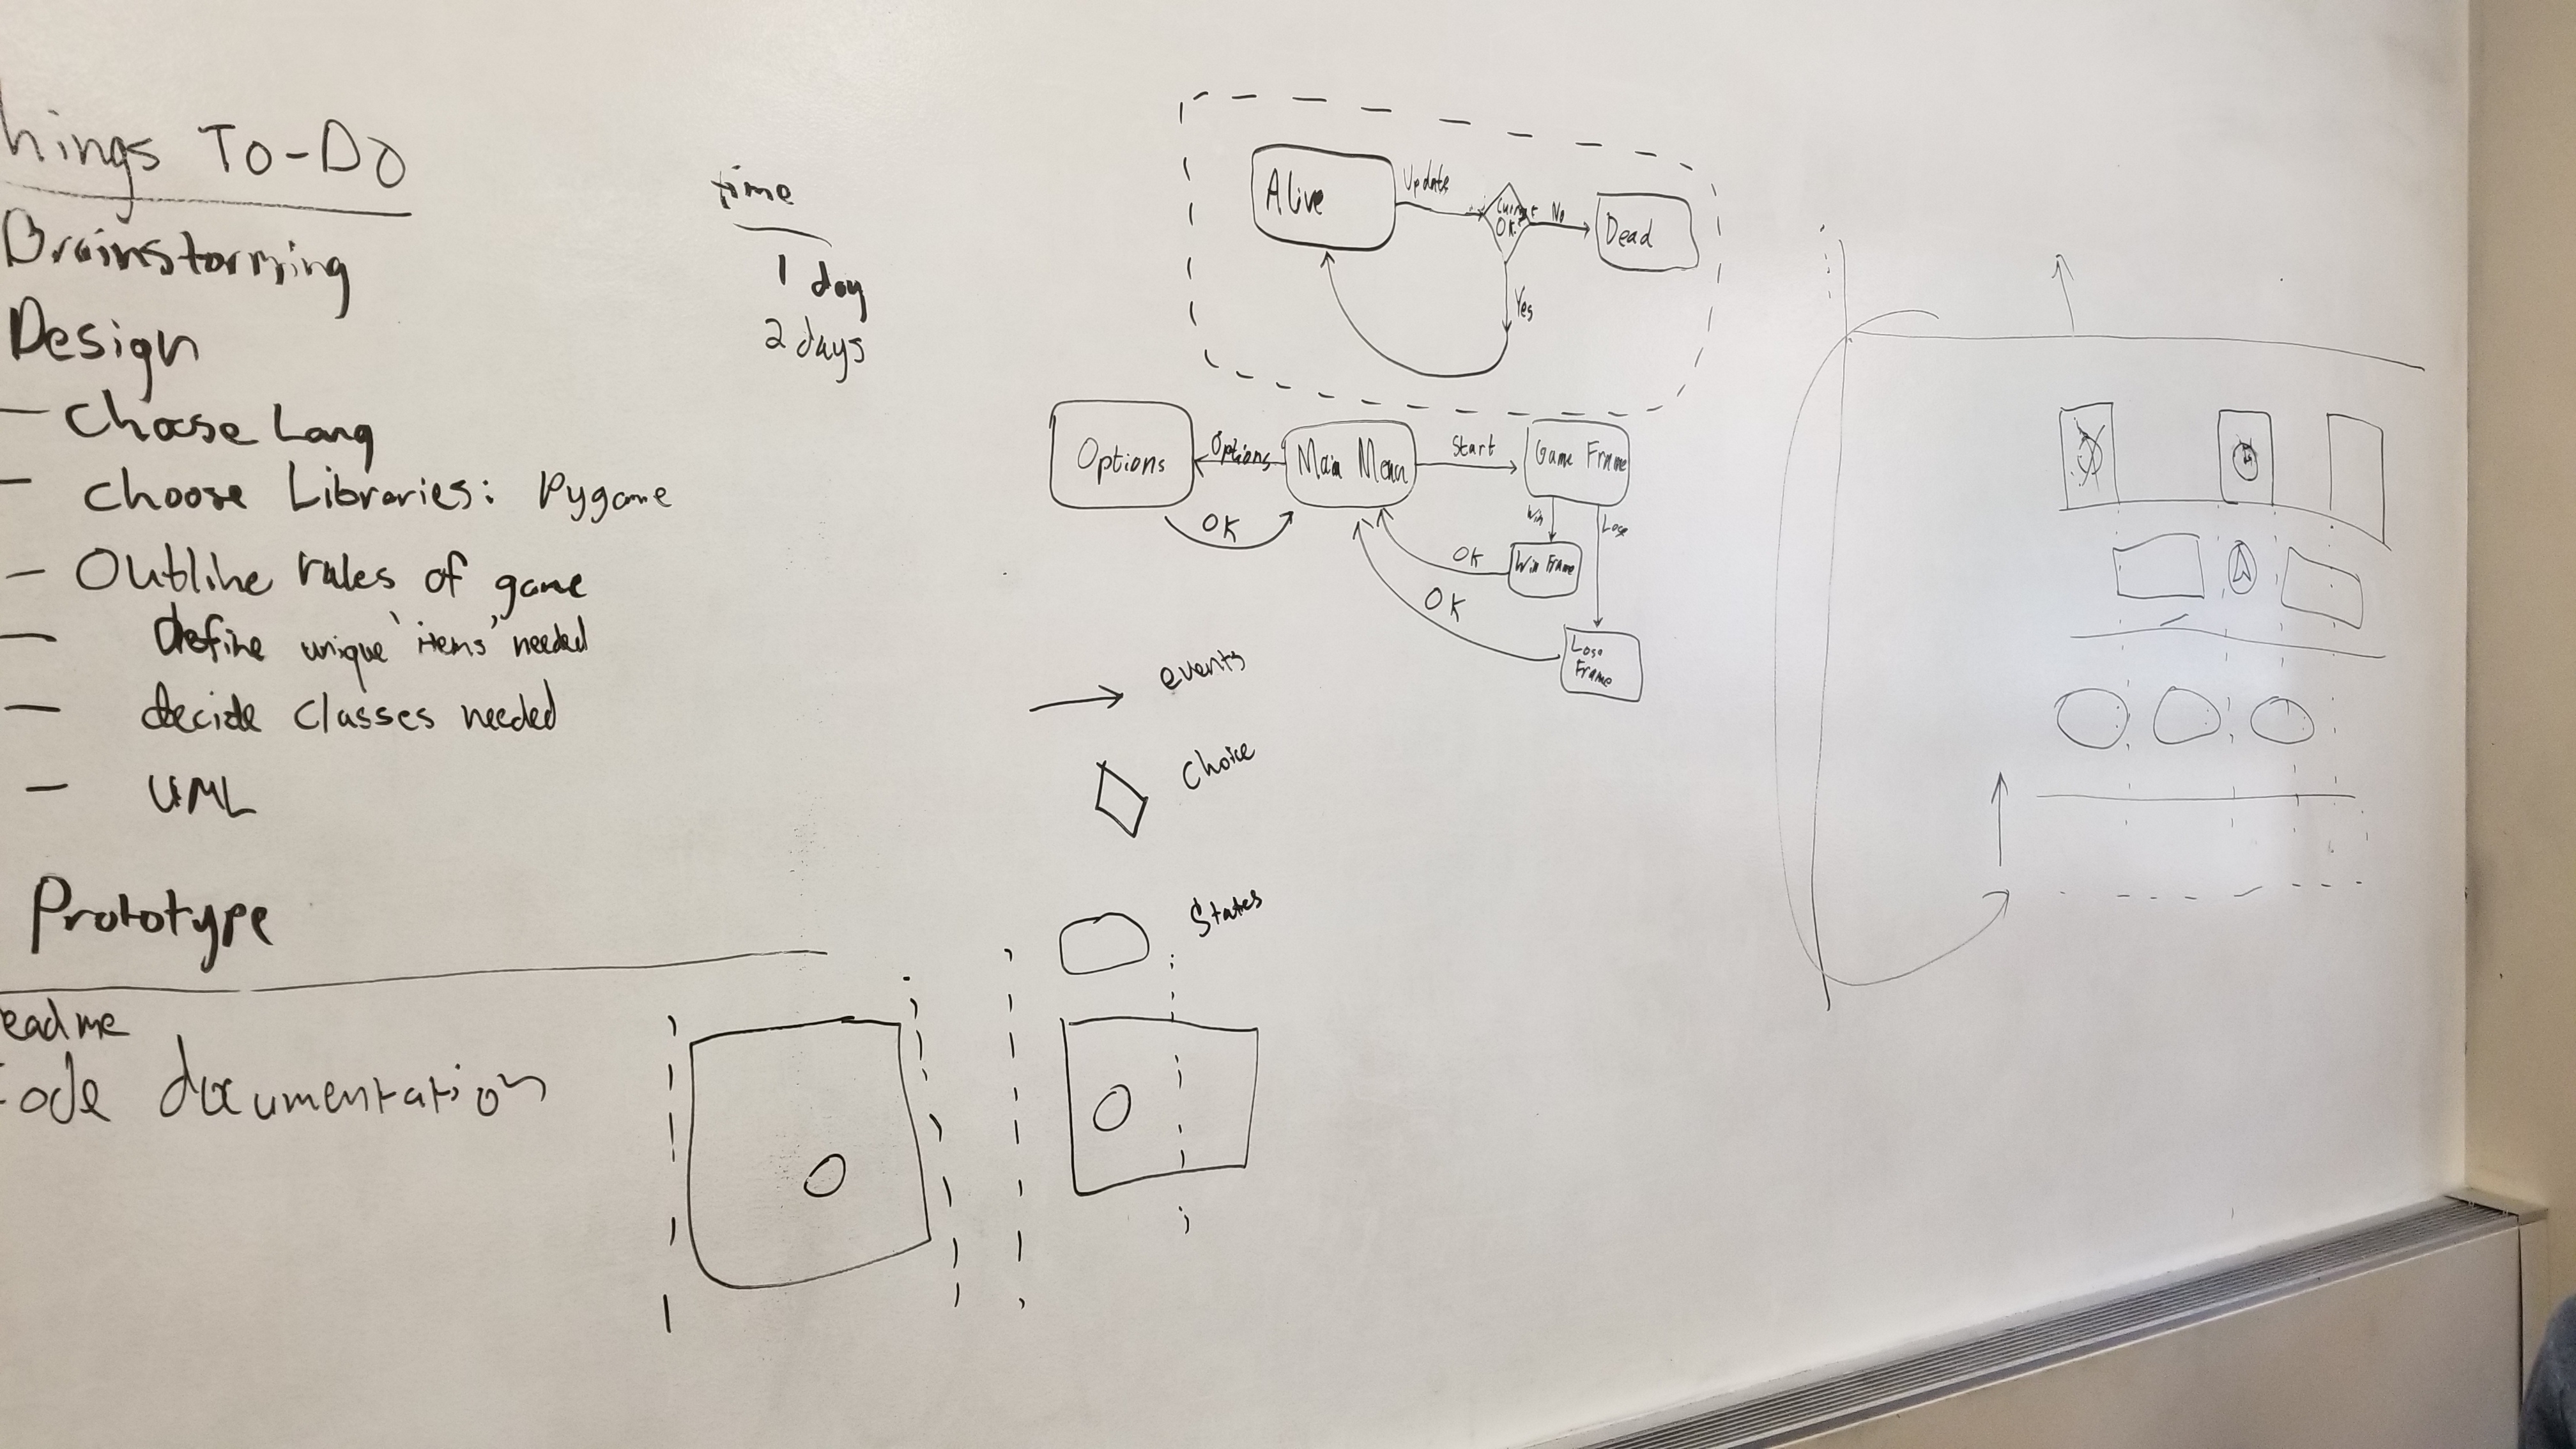 hings To-Do
Brainstorming
Design
- Choose Lang
- choose Libraries: Pygame
- Outline rules of game
- define unique 'items' needed
- decide classes needed
- UML
Prototype
eadme
ode documentation
time
1 day
2 days
Alive
Update
Current
OK?
No
Dead
Yes
Options
Options
Main Menu
Start
Game Frame
OK
Win
Lose
OK
Win Frame
OK
Lose
Frame
events
Choice
States